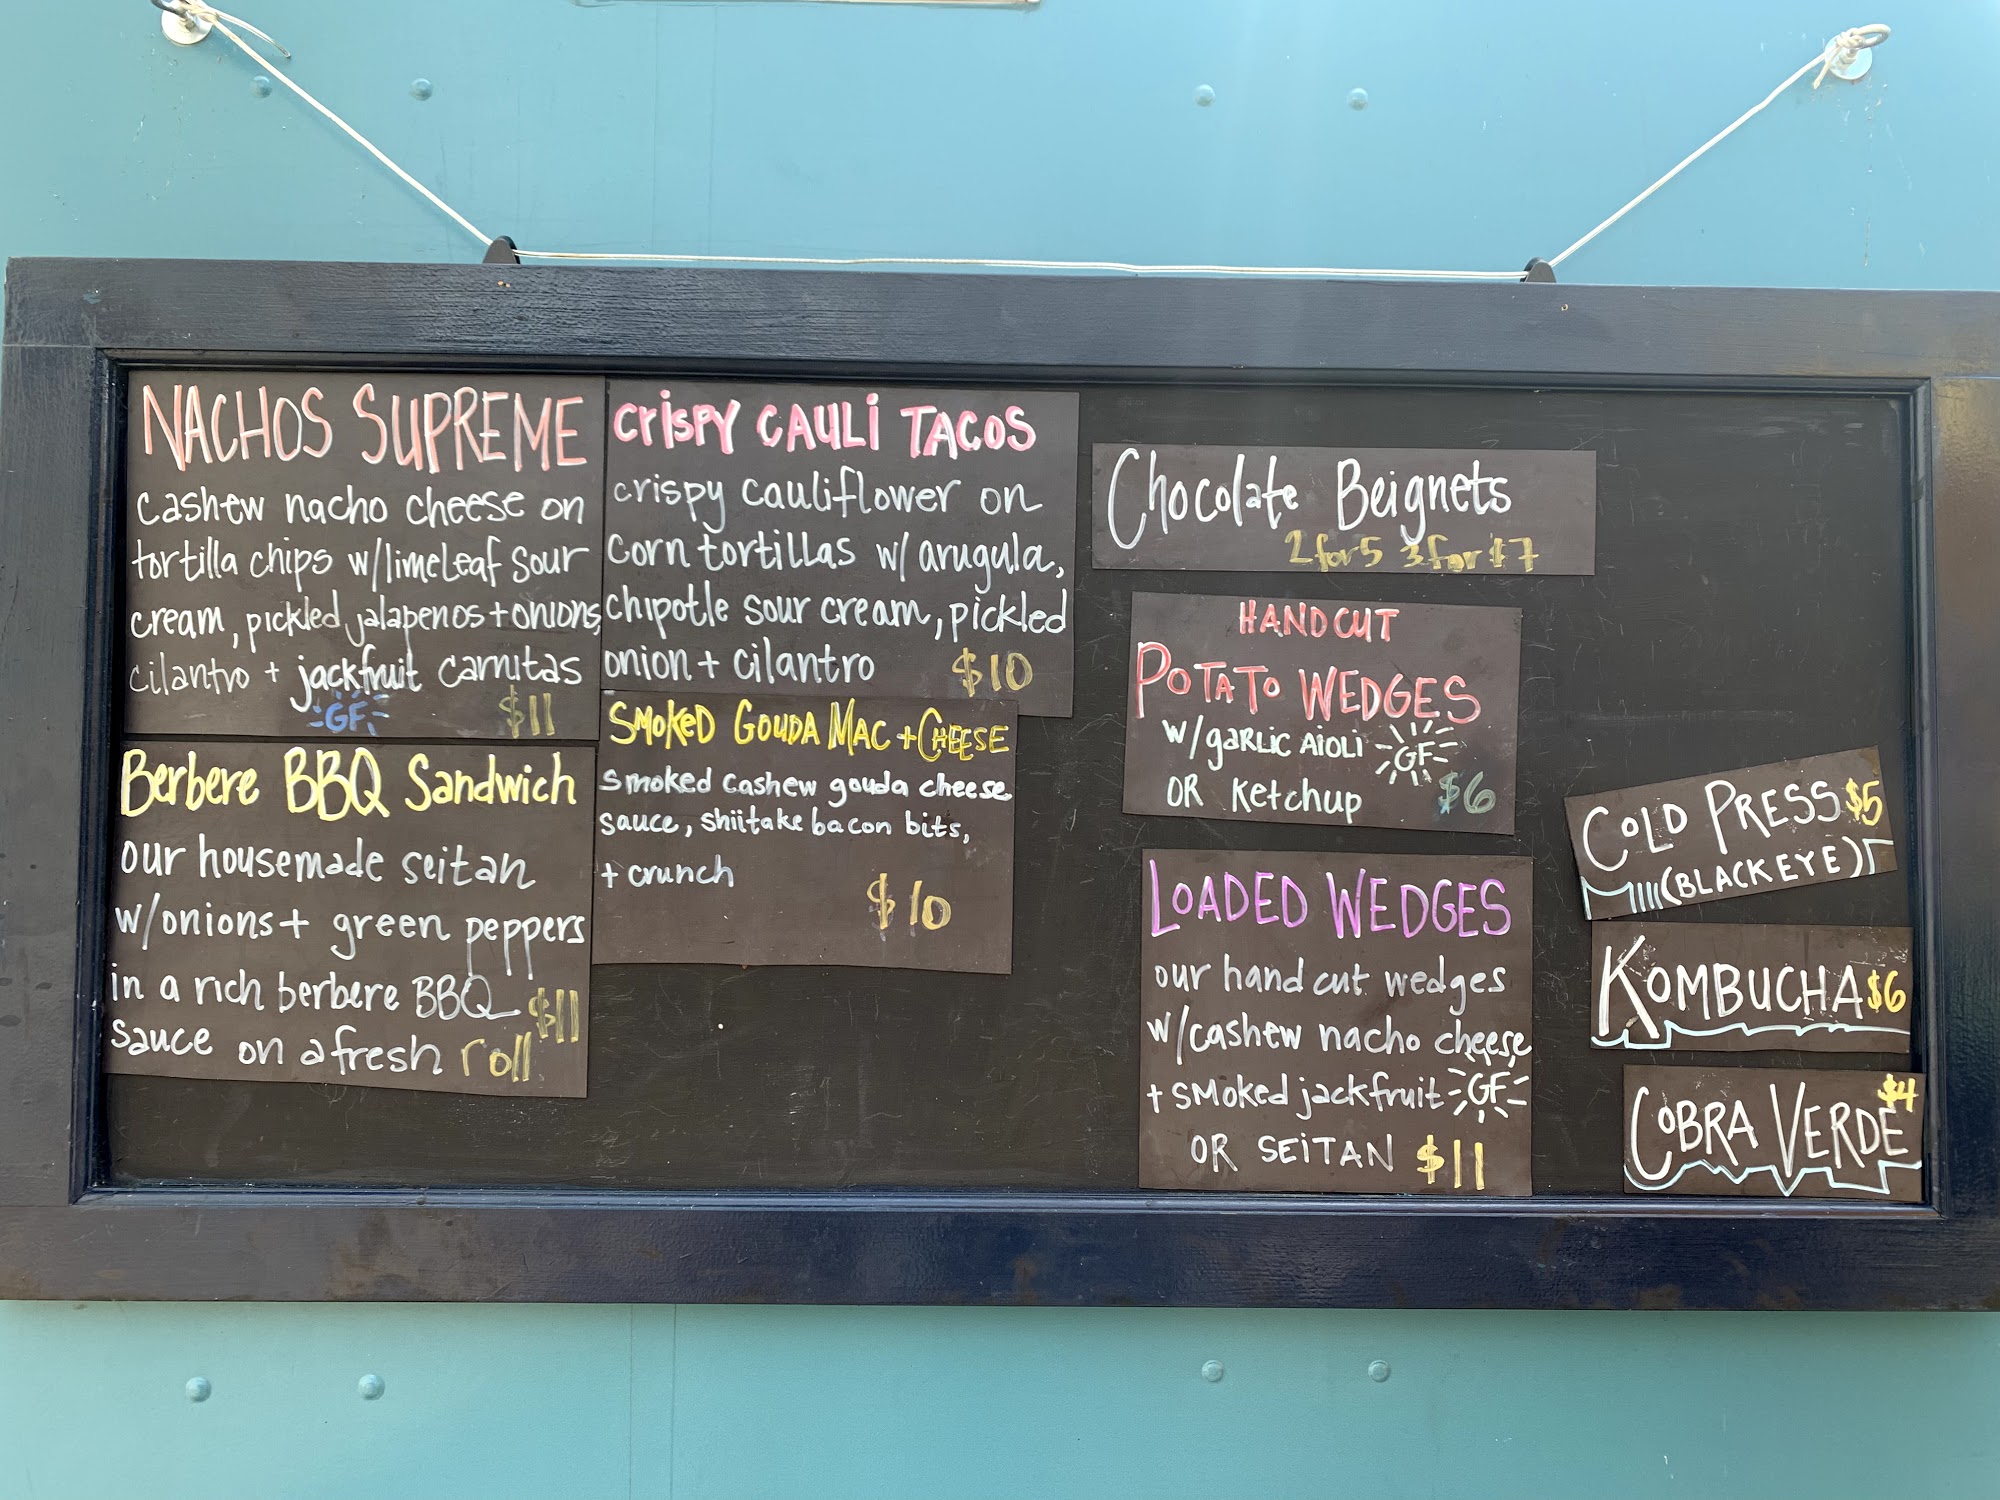 NACHOS SUPREME
cashew nacho cheese on
tortilla chips w/limeleaf sour
cream, pickled jalapenos + onions,
cilantro + jackfruit carnitas
GF $11
Berbere BBQ Sandwich
our housemade seitan
w/onions + green peppers
in a rich berbere BBQ $11
sauce on a fresh roll
CRISPY CAULI TACOS
crispy cauliflower on
corn tortillas w/ arugula,
chipotle sour cream, pickled
onion + cilantro $10
SMOKED GOUDA MAC + CHEESE
smoked cashew gouda cheese
sauce, shiitake bacon bits,
+ crunch
$10
Chocolate Beignets
2 for 5 3 for $7
HAND CUT
POTATO WEDGES
w/ GARLIC AIOLI GF
OR Ketchup $6
LOADED WEDGES
our hand cut wedges
w/cashew nacho cheese
+ smoked jackfruit GF
OR SEITAN $11
COLD PRESS $5
(BLACK EYE)
KOMBUCHA $6
COBRA VERDE $4